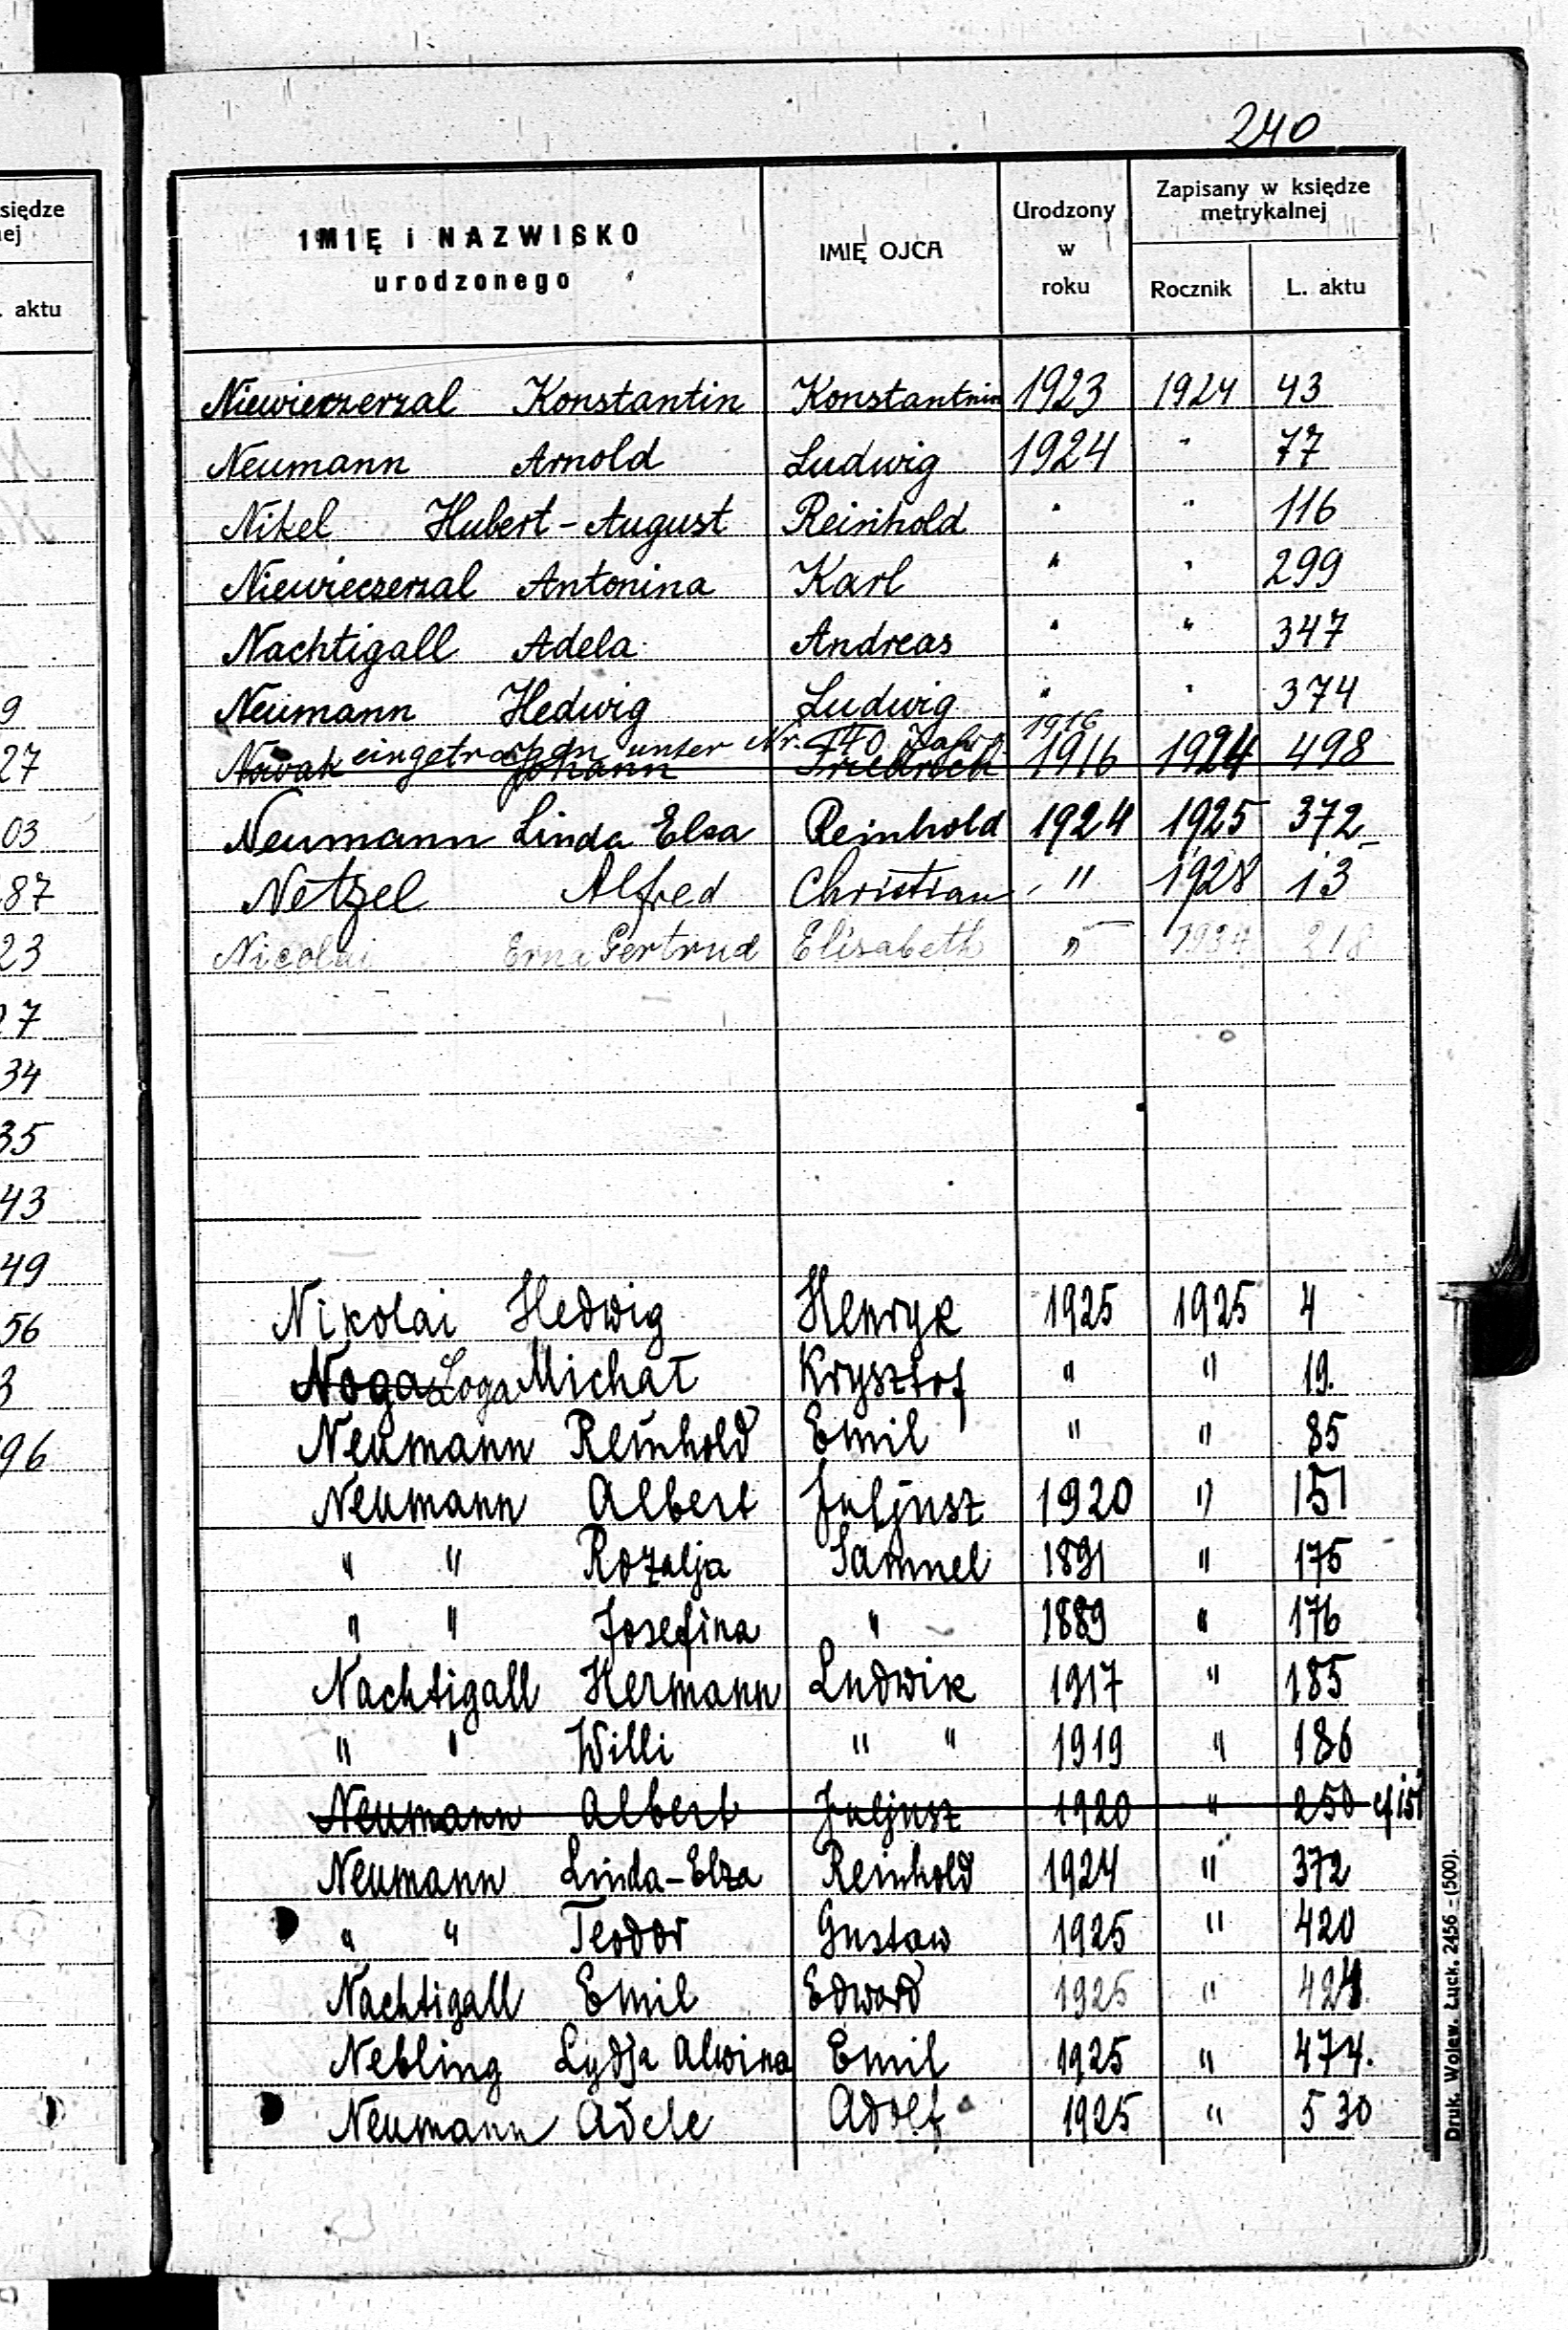 240
siędze
ej
. aktu
9
27
03
87
23
27
34
35
43
49
56
3
96
IMIĘ i NAZWISKO
urodzonego
IMIĘ OJCA
Urodzony
w
roku
Zapisany w księdze
metrykalnej
Rocznik L. aktu
Niewieczerzal Konstantin Konstantnin 1923 1924 43
Neumann Arnold Ludwig 1924 " 77
Nikel Hubert-August Reinhold " " 116
Niewieczerzal Antonina Karl " " 299
Nachtigall Adela Andreas " " 347
Neumann Hedwig Ludwig " " 374
eingetragen unter Nr. 440 Jahr 1916
Nowak Johann Friedrich 1916 1924 498
Neumann Linda Elsa Reinhold 1924 1925 372
Netzel Alfred Christian " 1928 13
Nicolai Erna Gertrud Elisabeth " 1934 218
Nikolai Hedwig Henryk 1925 1925 4
Noga Loga Michał Krysztof " " 19.
Neumann Reinhold Emil " " 85
Neumann Albert Juljusz 1920 " 151
" " Rozalja Samuel 1891 " 175
" " Josefina " 1889 " 176
Nachtigall Hermann Ludwik 1917 " 185
" " Willi " " 1919 " 186
Neumann Albert Juljusz 1920 " 250 cf 151
Neumann Linda-Elza Reinhold 1924 " 372
" " Teodor Gustaw 1925 " 420
Nachtigall Emil Edward 1925 " 424.
Nebling Lydja Alwina Emil 1925 " 474.
Neumann Adele Adolf 1925 " 530
Druk. Wolew. Łuck. 2456 - (500).